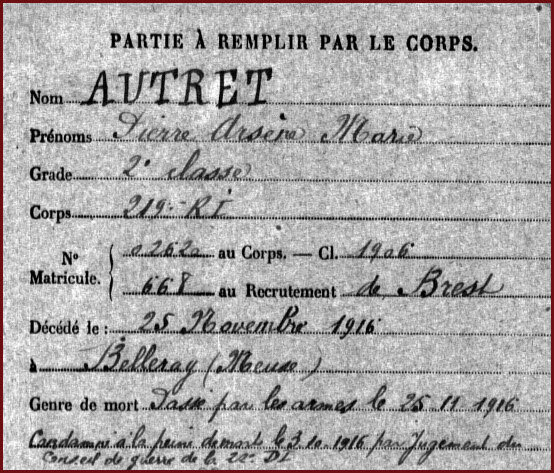 PARTIE À REMPLIR PAR LE CORPS.
Nom AUTRET
Prénoms Pierre Arsène Marie
Grade 2e classe
Corps 219e RI
No Matricule. 02620 au Corps. — Cl. 1906
668 au Recrutement de Brest
Décédé le : 25 Novembre 1916
à Belleray (Meuse)
Genre de mort Passé par les armes le 25 11 1916
Condamné à la peine de mort le 3 10 1916 par Jugement du
Conseil de guerre de la 22e DI